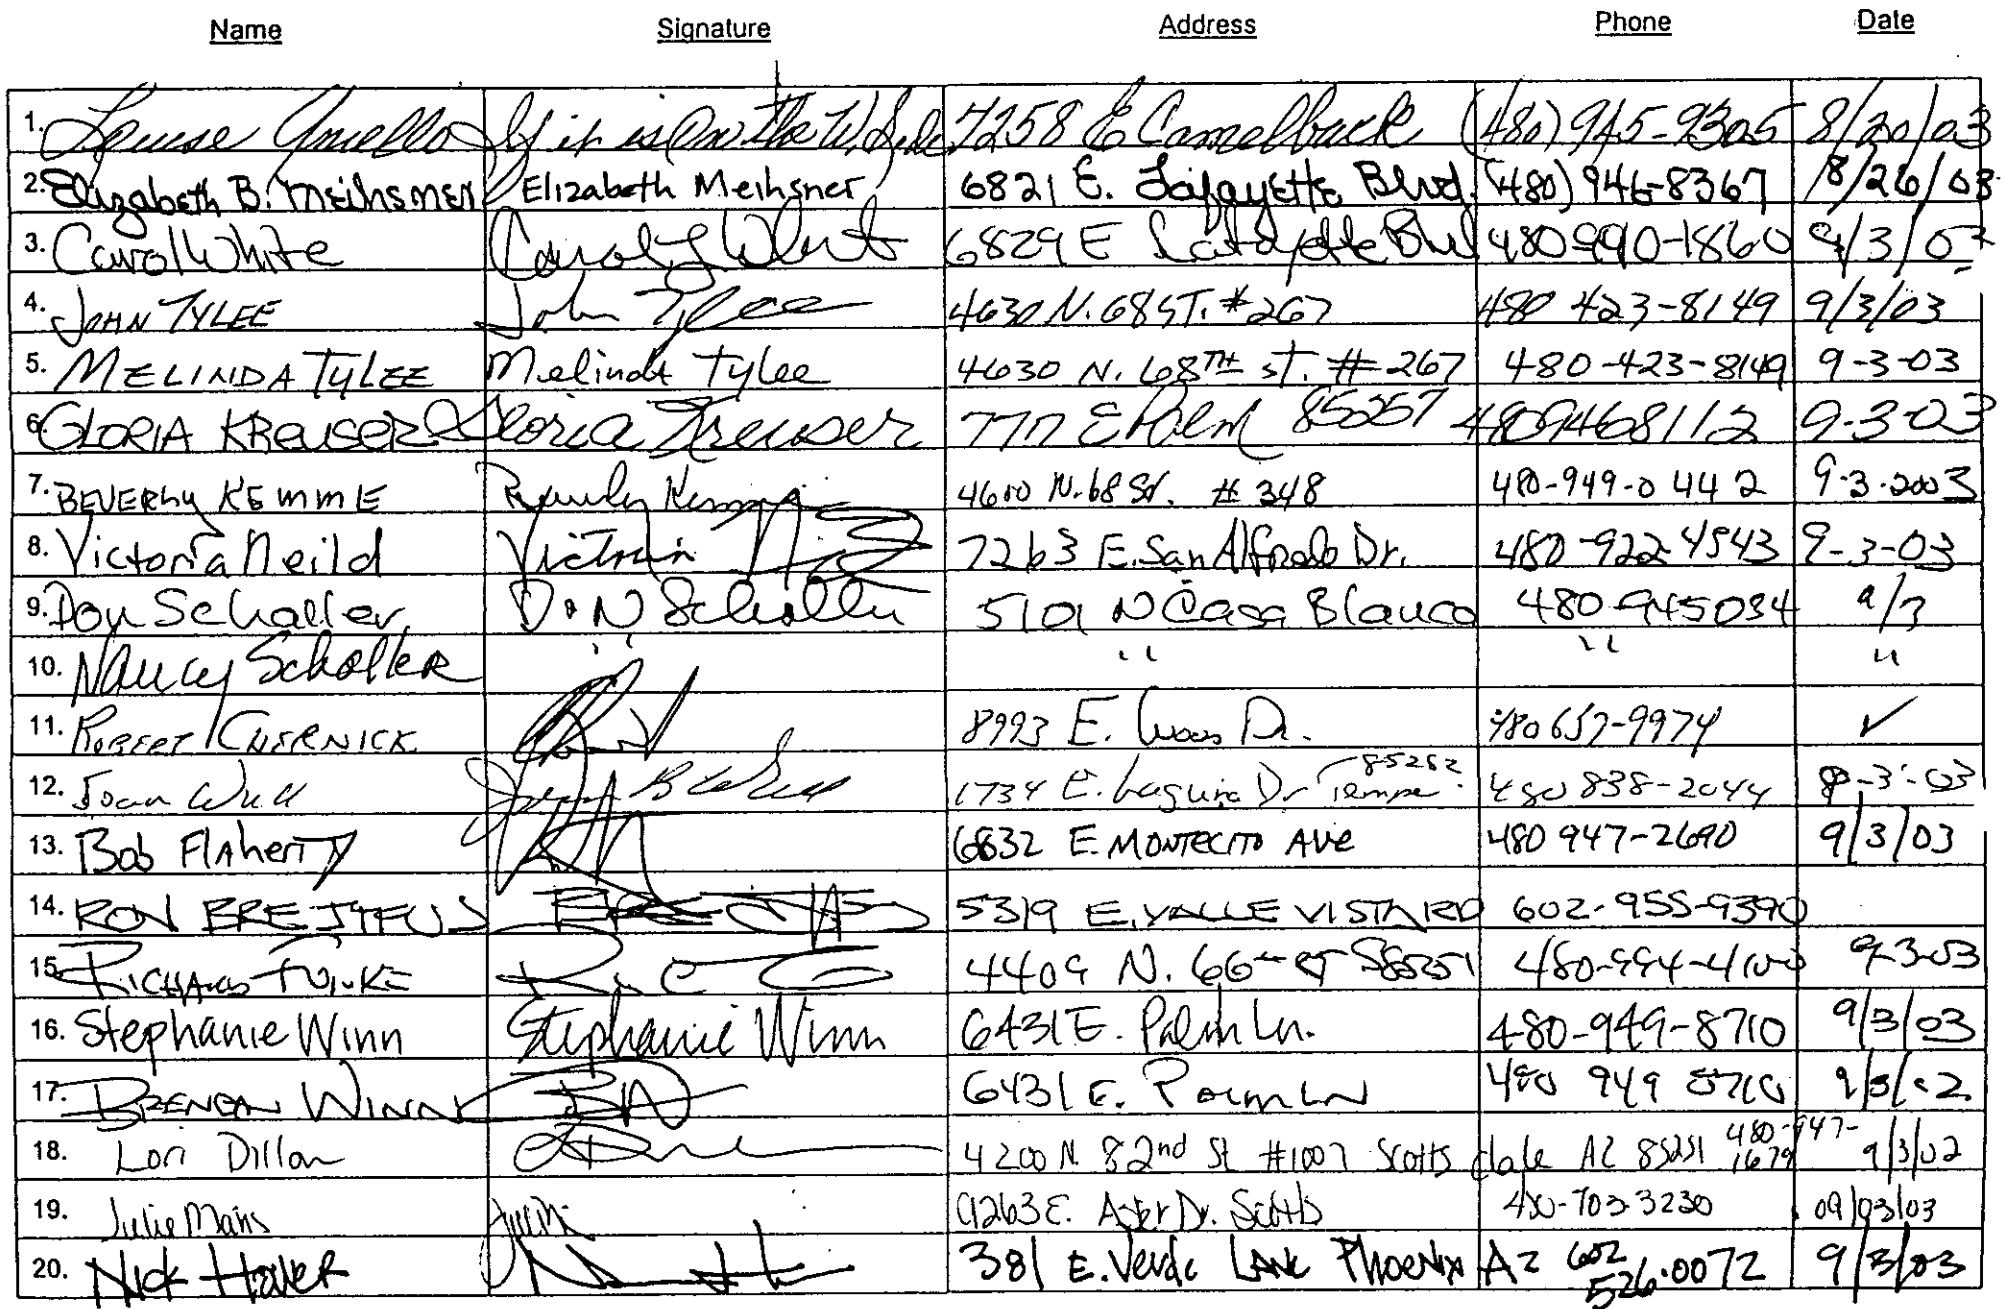 Name Signature Address Phone Date
1. Louise If it is On the W. Side 7258 E Camelback (480) 945-9305 8/20/03
2. Elizabeth B. Meihsner Elizabeth Meihsner 6821 E. Lafayette Blvd. (480) 946-8367 8/26/03
3. Carol White Carol White 6829 E Lafayette Blvd 480 990-1860 9/3/03
4. JOHN TYLEE John Tylee 4630 N. 68 ST. #267 480 423-8149 9/3/03
5. MELINDA TYLEE Melinda Tylee 4630 N. 68TH st. #267 480-423-8149 9-3-03
6. GLORIA KREUSER Gloria Kreuser E Palm 85257 4809468112 9-3-03
7. BEVERLY KEMME Beverly Kemme 4600 N. 68 St. #348 480-949-0442 9-3-2003
8. Victoria Neild Victoria 7263 E. San Alfredo Dr. 480-922-4543 9-3-03
9. Don Schaller Don Schaller 5101 N Casa Blanca 480-945034 9/3
10. Nancy Schaller " " " "
11. ROBERT CHERNICK 8993 E. Dr. 480 657-9974 ✓
12. Joan Wull 1734 E. Laguna Dr Tempe 85282 480 838-2044 9-3-03
13. Bob Flaherty 6832 E. MONTECITO AVE 480 947-2690 9/3/03
14. RON BREITFUS 5319 E. VALLE VISTA RD 602-955-9390
15. RICHARD FUNKE 4409 N. 66th ST 85251 480-994-4100 9-3-03
16. Stephanie Winn Stephanie Winn 6431 E. Palm Ln. 480-949-8710 9/3/03
17. BRENDAN WINN 6431 E. Palm LN 480 949 8710 9/3/02
18. Lori Dillon 4200 N 82nd St #1007 Scottsdale AZ 85251 480-947-1679 9/3/02
19. Julie Mains 9263 E. Aster Dr. Scotts 480-703-3230 09/03/03
20. NICK HOVER 381 E. Verde LANE Phoenix AZ 602 526-0072 9/3/03